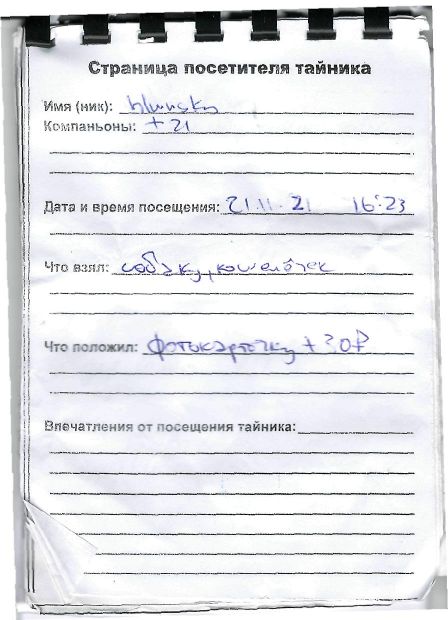 Страница посетителя тайника
Имя (ник):
Компаньоны: + 21
Дата и время посещения: 21.11.21 16:23
Что взял: собаку, кошелёчек
Что положил: фотокарточку + 30₽
Впечатления от посещения тайника: